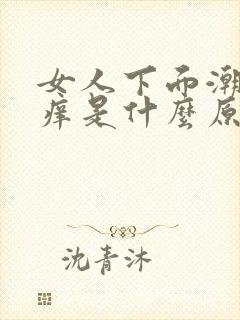 女人下而潮
痒是什麼原
沈青沐